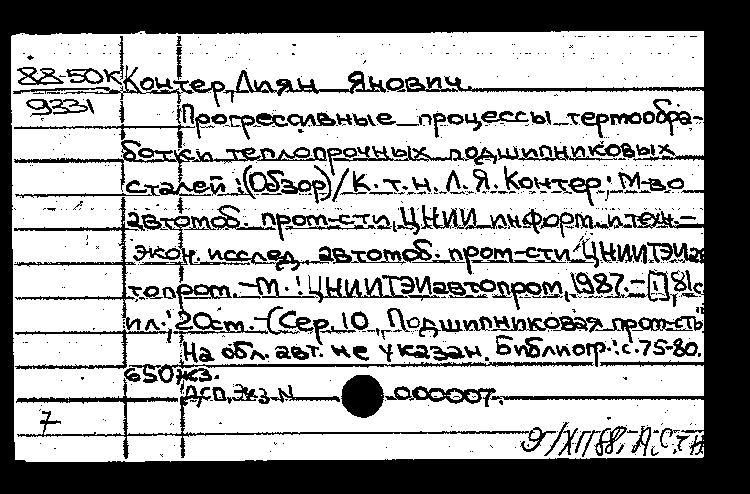 88-50К Контер, Лиян Янович.
9331
Прогрессивные процессы термообра-
ботки теплопрочных подшипниковых
сталей : (Обзор) / К. т. н. Л. Я. Контер ; М-во
автомоб. пром-сти, ЦНИИ информ. и техн.-
экон. исслед. автомоб. пром-сти ЦНИИТЭИав
топром. - М. : ЦНИИТЭИавтопром, 1987. - [1], 81с
ил.; 20см. - (Сер. 10, Подшипниковая пром-сть
На обл. авт. не указан. Библиогр.: с. 75-80.
650 экз.
ДСП, Экз. N 000007.
7
9/XII 88, А.С.